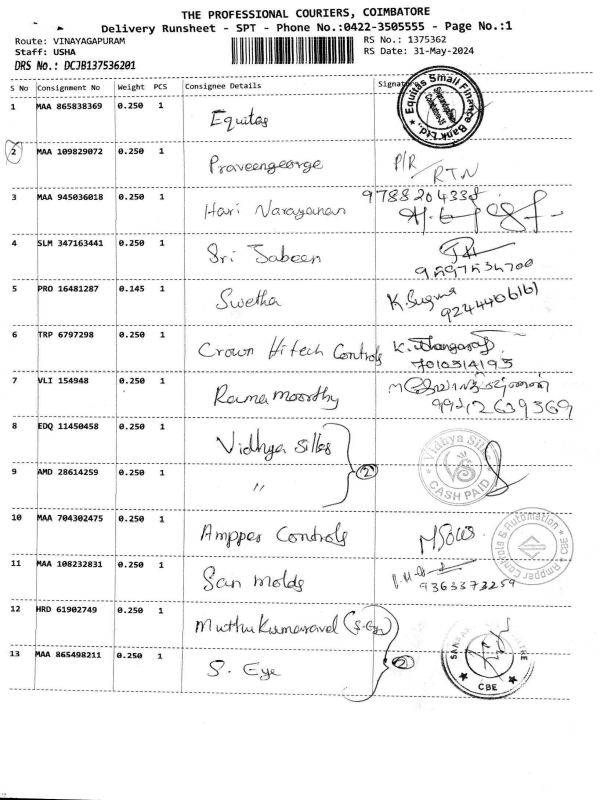 THE PROFESSIONAL COURIERS, COIMBATORE
Delivery Runsheet - SPT - Phone No.:0422-3505555 - Page No.:1
Route: VINAYAGAPURAM RS No.: 1375362
Staff: USHA RS Date: 31-May-2024
DRS No.: DCJB137536201
S No Consignment No Weight PCS Consignee Details Signature
1 MAA 865838369 0.250 1 Equitas
Equitas Small Finance Bank Ltd.,
2 MAA 109829072 0.250 1 Praveengeorge P/R RTN
3 MAA 945036018 0.250 1 Hari Narayanan
4 SLM 347163441 0.250 1 Sri Jabeen
5 PRO 16481287 0.145 1 Swetha K. Sugma 9244406161
6 TRP 6797298 0.250 1 Crown Hitech Controls K. Thangaraj
7010514195
7 VLI 154948 0.250 1 Ramamoorthy
8 EDQ 11450458 0.250 1 Vidhya Silks
Vidhya Silks CASH PAID
9 AMD 28614259 0.250 1 " 2
10 MAA 704302475 0.250 1 Ampper Controls
Ampper Controls & Automation CBE
11 MAA 108232831 0.250 1 San Molds 9363373259
12 HRD 61902749 0.250 1 Muthukumaravel (S-Eye)
13 MAA 865498211 0.250 1 S. Eye 2
CBE